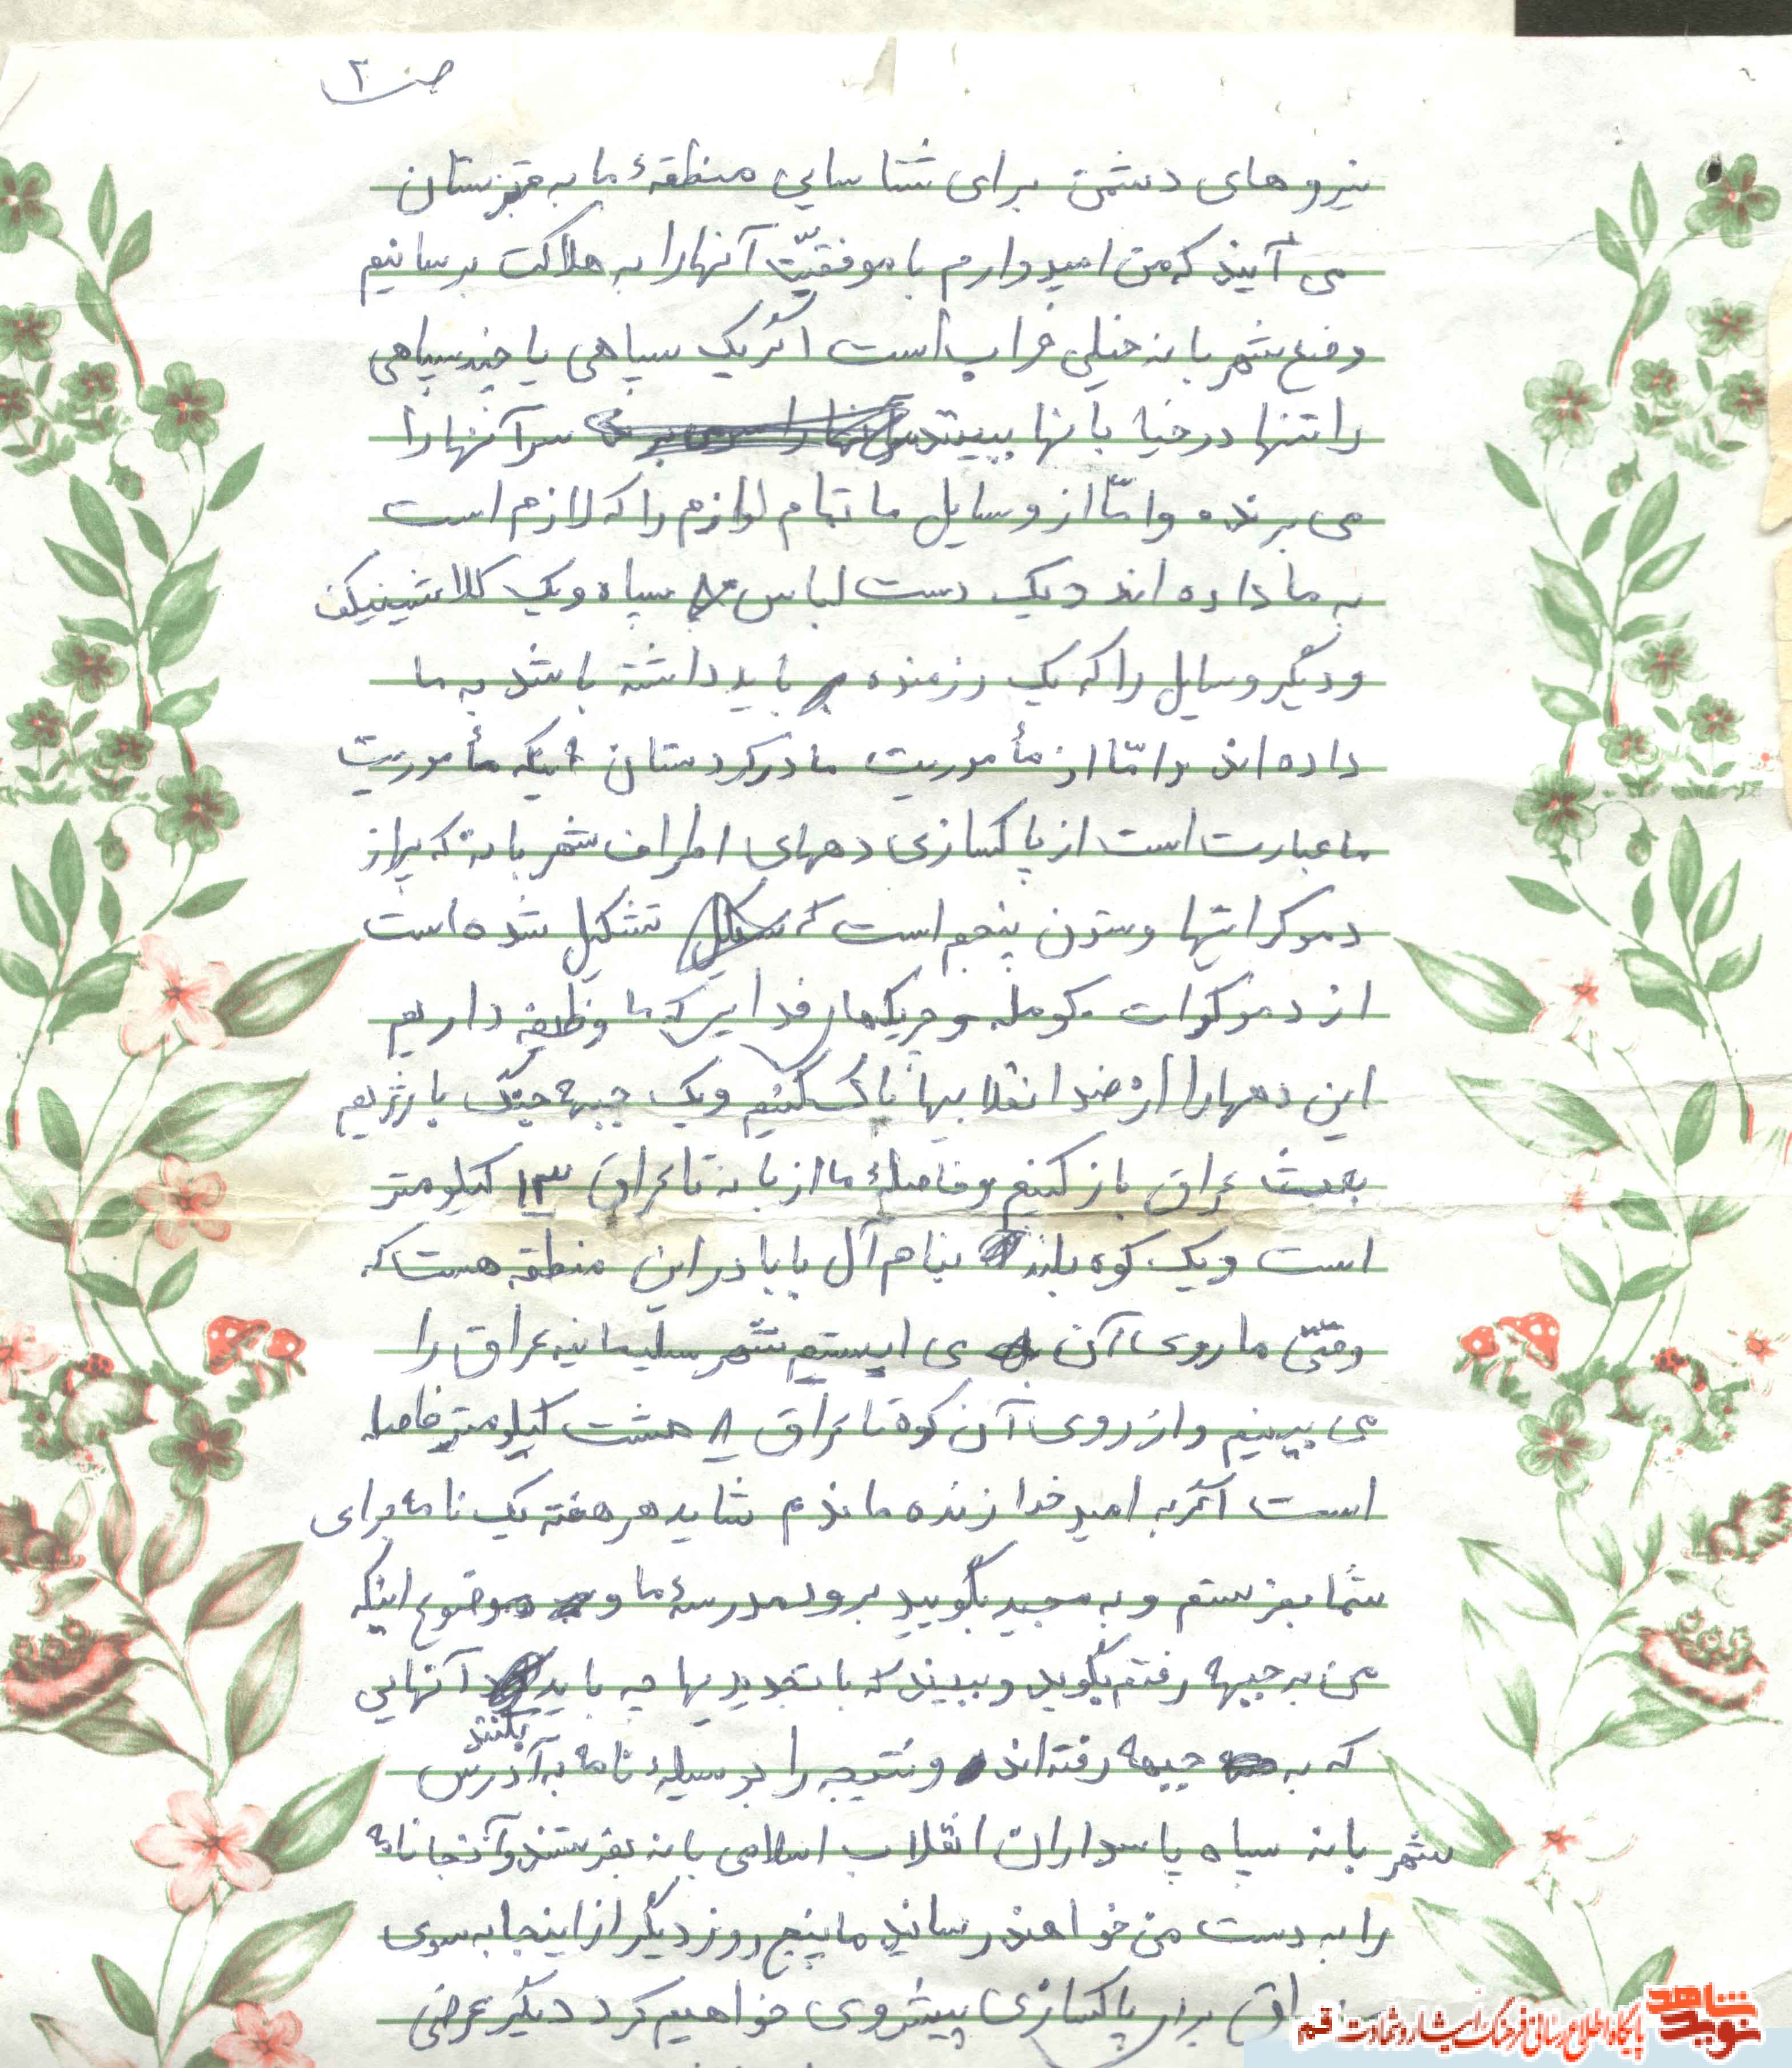 صـ ۲
نیروهای دشمن برای شناسایی منطقهٔ ما به قبرستان
می آیند که من امیدوارم با موفقیّت آنها را به هلاکت برسانیم
وضع شهر بانه خیلی خراب است اگر یک سپاهی یا چند سپاهی
را تنها در خیابانها ببینند سر آنها را
می برنده و امّا از وسایل ما تمام لوازم را که لازم است
به ما داده اند و یک دست لباس سپاه و یک کلاشینیکف
و دیگر وسایل را که یک رزمنده باید داشته باشد به ما
داده اند و امّا از مأموریت ما در کردستان اینکه مأموریت
ما عبارت است از پاکسازی دههای اطراف شهر بانه که پر از
دموکراتها و ستون پنجم است که تشکیل شده است
از دموکرات کومله و چریکهای فدایی که ما وظیفه داریم
این دهها را از ضد انقلابیها پاک کنیم و یک جبهه جنگ با رژیم
بعث عراق باز کنیم و فاصلهٔ ما از بانه تا عراق ۱۳ کیلومتر
است و یک کوه بلند بنام آل بابا در این منطقه هست که
وقتّی ما روی آن می ایستیم شهر سلیمانیه عراق را
می بینیم و از روی آن کوه تا عراق ۸ هشت کیلومتر فاصله
است اگر به امید خدا زنده ماندم شاید هر هفته یک نامه برای
شما بفرستم و به مجید بگویید برود مدرسهٔ ما و موضوع اینکه
من به جبهه رفتم بگوید و ببیند که با تجدیدیها چه باید آنهایی
بکنند
که به جبهه رفته اند و نتیجه را بوسیلهٔ نامه به آدرس
شهر بانه سپاه پاسداران انقلاب اسلامی بانه بفرستند و آنجا نامه
را به دست من خواهند رسانید ما پنج روز دیگر از اینجا به سوی
برای پاکسازی پیشروی خواهیم کرد دیگر عرضی
نوید شاهد
پایگاه اطلاع رسانی فرهنگ ایثار و شهادت قم